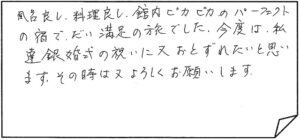 風呂良し、料理良し、館内ピカピカのパーフェクト
の宿で、だい満足の旅でした。今度は、私
達銀婚式の祝いに又おとずれたいと思い
ます。その時は又よろしくお願いします。